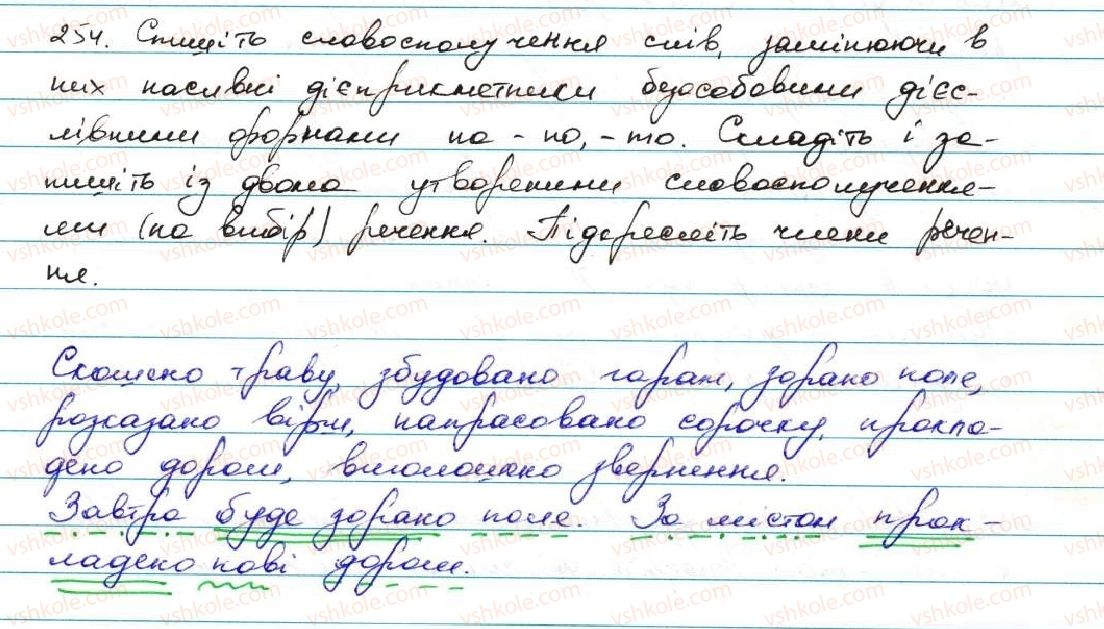 254. Спишіть словосполучення слів, замінюючи в
них пасивні дієприкметники безособовими дієс-
лівними формами на -но, -то. Складіть і за-
пишіть із двома утвореними словосполучення-
ми (на вибір) речення. Підкресліть члени речен-
ня.
Скошено траву, збудовано гараж, зорано поле,
розказано вірш, напрасовано сорочку, прокла-
дено дороги, виголошено звернення.
Завтра буде зорано поле. За містом прок-
ладено нові дороги.